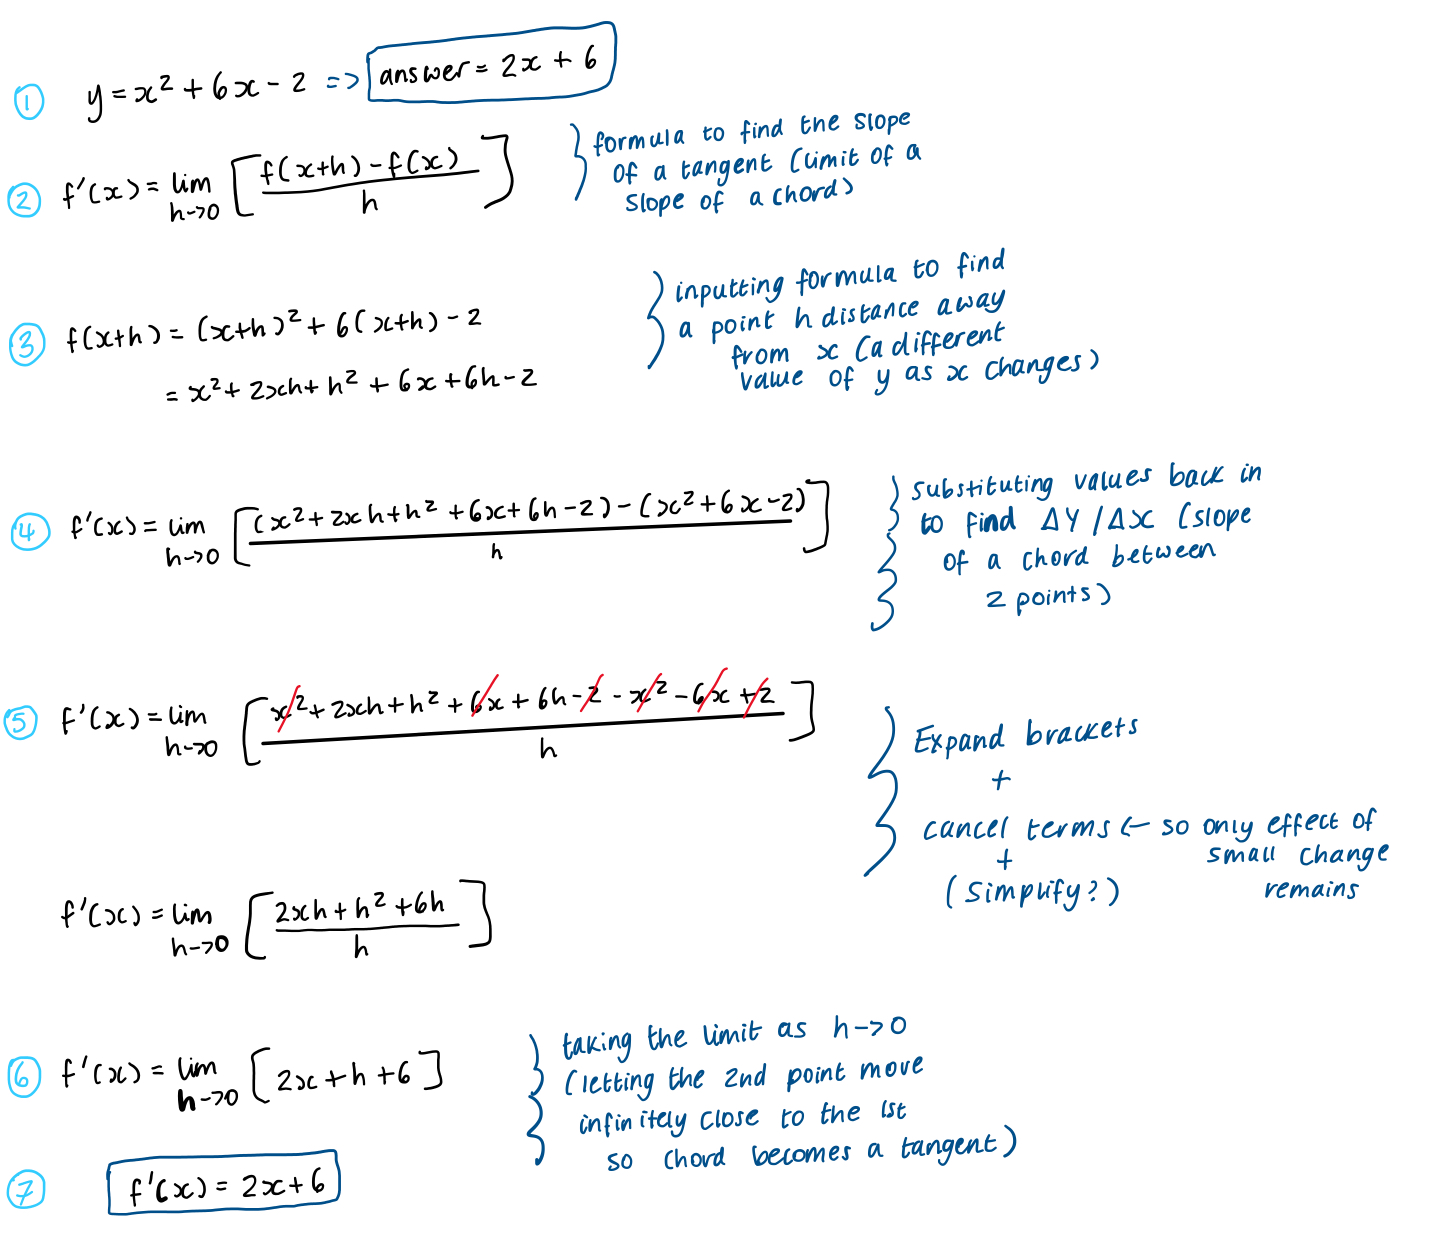 ① y = x² + 6x - 2 => answer = 2x + 6
② f'(x) = lim h->0 [ f(x+h) - f(x) / h ]
formula to find the slope
of a tangent (limit of a
slope of a chord)
③ f(x+h) = (x+h)² + 6(x+h) - 2
= x² + 2xh + h² + 6x + 6h - 2
inputting formula to find
a point h distance away
from x (a different
value of y as x changes)
④ f'(x) = lim h->0 [ (x² + 2xh + h² + 6x + 6h - 2) - (x² + 6x - 2) / h ]
substituting values back in
to find ΔY / Δx (slope
of a chord between
2 points)
⑤ f'(x) = lim h->0 [ x² + 2xh + h² + 6x + 6h - 2 - x² - 6x + 2 / h ]
Expand brackets
+
cancel terms <- so only effect of
small change
remains
+
(simplify?)
f'(x) = lim h->0 [ 2xh + h² + 6h / h ]
⑥ f'(x) = lim h->0 [ 2x + h + 6 ]
taking the limit as h->0
(letting the 2nd point move
infinitely close to the 1st
so chord becomes a tangent)
⑦ f'(x) = 2x + 6